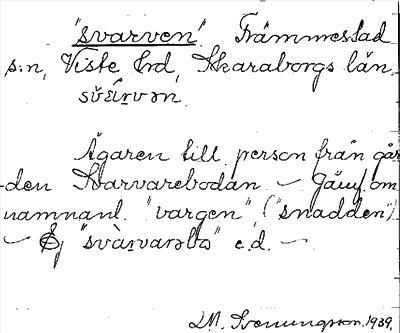 "svarven". Främmestad
s:n, Viste hrd, Skaraborgs län.
Ägaren till person från går-
den Svarvarebodan. – Jämf. om
namnanl. "vargen", ("snadden")
– Ej "svàrvarəbo" e.d. –
LM. Svenungsson. 1939.